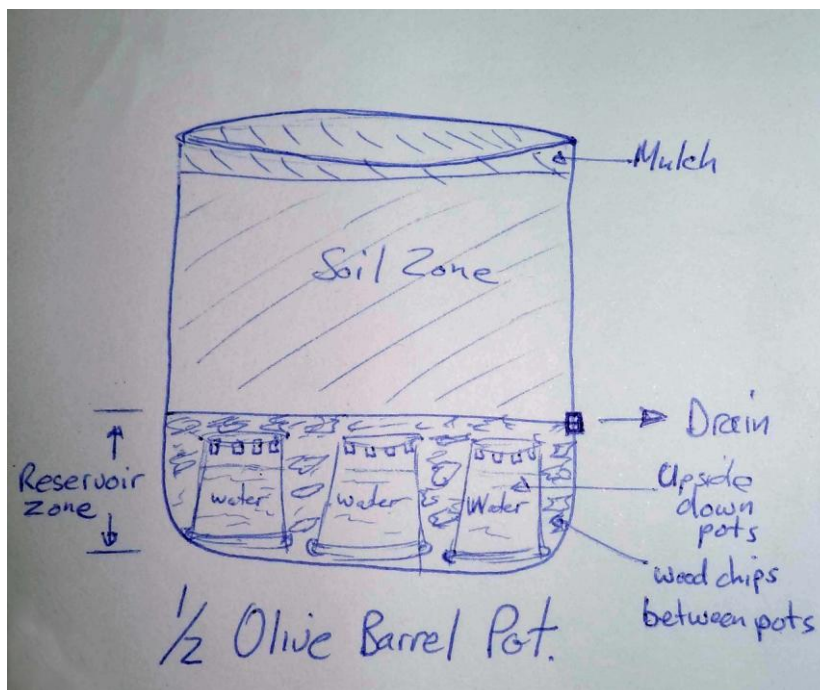 Mulch
Soil Zone
Drain
Reservoir
zone
water
water
Water
Upside
down
pots
wood chips
between pots
1/2 Olive Barrel Pot.